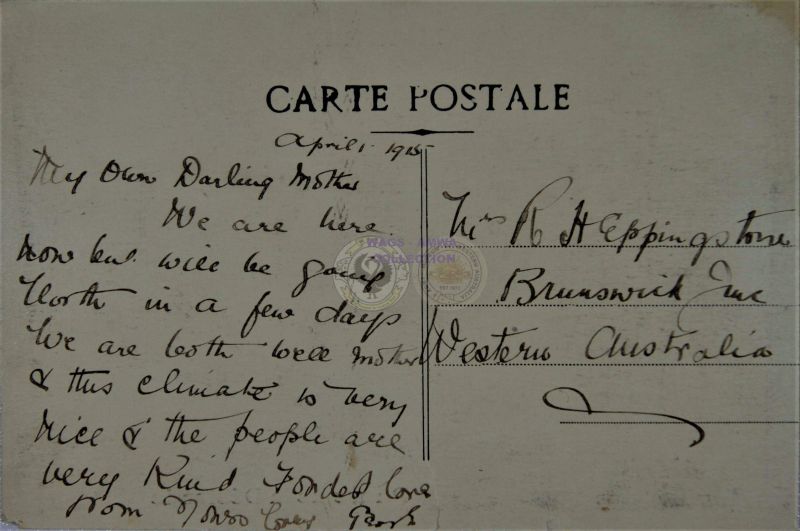 CARTE POSTALE
April 1 1915
My Own Darling Mother
We are here
now but will be going
North in a few days
We are both well Mother
& this climate is very
nice & the people are
very Kind Fondest love
from Yours
Mrs R H Eppingstone
Brunswick Junc
Western Australia
WAGS - AMWA
COLLECTION